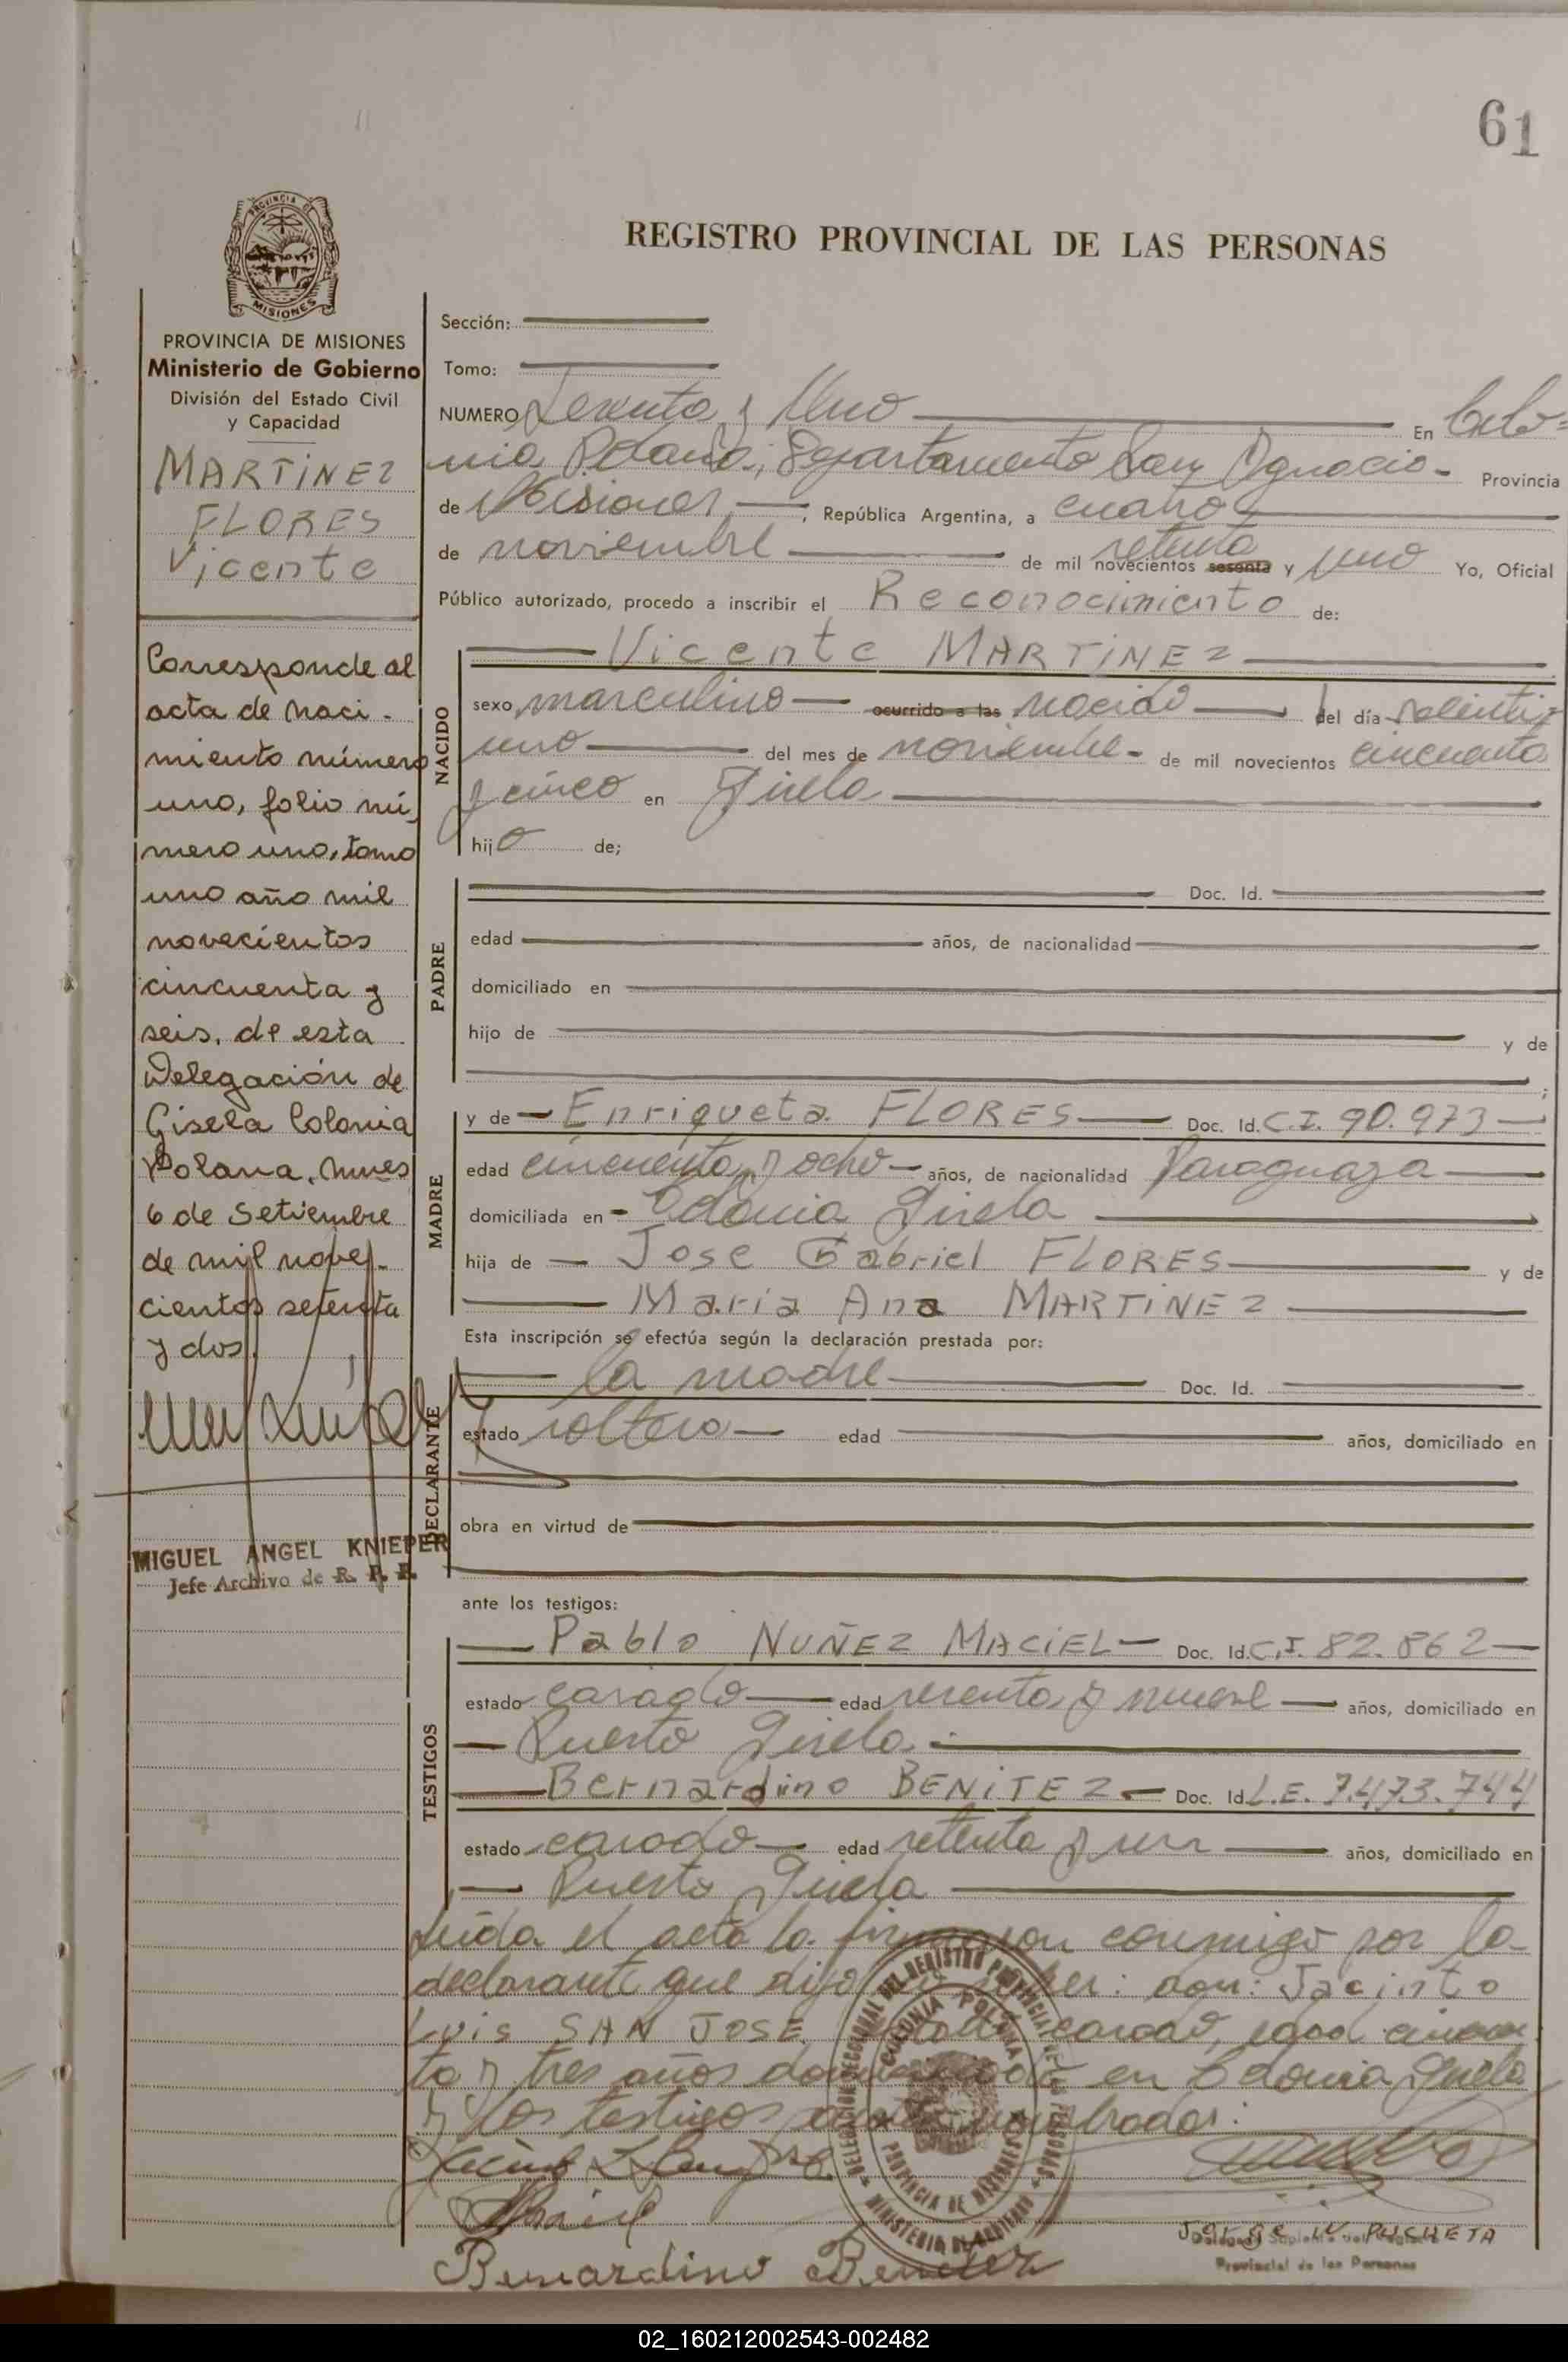 61
PROVINCIA DE
MISIONES
REGISTRO PROVINCIAL DE LAS PERSONAS
PROVINCIA DE MISIONES
Ministerio de Gobierno
División del Estado Civil
y Capacidad
MARTINEZ
FLORES
Vicente
Corresponde al
acta de naci-
miento número
uno, folio nú
mero uno, tomo
uno año mil
novecientos
cincuenta y
seis, de esta
Delegación de
Gisela Colonia
Polana,
6 de Setiembre
de mil nove-
cientos setenta
y dos.
MIGUEL ANGEL KNIEPER
Jefe Archivo de R. P. P.
Sección:
Tomo:
NUMERO Sesenta y Uno En Colo=
nia Polana, Departamento San Ignacio- Provincia
de Misiones, República Argentina, a cuatro
de noviembre de mil novecientos sesenta setenta y uno Yo, Oficial
Público autorizado, procedo a inscribir el Reconocimiento de:
Vicente MARTINEZ
NACIDO
sexo masculino ocurrido a las nacido del día veinti-
uno del mes de noviembre- de mil novecientos cincuenta
y cinco en Gisela
hijo de;
PADRE
Doc. Id.
edad años, de nacionalidad
domiciliado en
hijo de y de
;
MADRE
y de Enriqueta FLORES Doc. Id. C.I. 90.973
edad cincuenta y ocho años, de nacionalidad Paraguaya
domiciliada en - Colonia Gisela
hija de Jose Gabriel FLORES y de
Maria Ana MARTINEZ
Esta inscripción se efectúa según la declaración prestada por:
DECLARANTE
la madre Doc. Id.
estado soltera edad años, domiciliado en
obra en virtud de
ante los testigos:
TESTIGOS
Pablo NUÑEZ MACIEL Doc. Id. C.I. 82.862
estado casado edad sesenta y nueve años, domiciliado en
Puerto Gisela
Bernardino BENITEZ Doc. Id. L.E. 7.473.744
estado casado edad setenta y un años, domiciliado en
Puerto Gisela
Leída el acta la firmaron conmigo por la
declarante que dijo no saber: don: Jacinto
Luis SAN JOSE, casado, edad cincuen
ta y tres años domiciliado en Colonia Gisela
y los testigos antes nombrados:
Bernardino Benitez
COLONIA POLANA
PROVINCIA DE MISIONES
MINISTERIO DE GOBIERNO
Provincial de las Personas
02_160212002543-002482